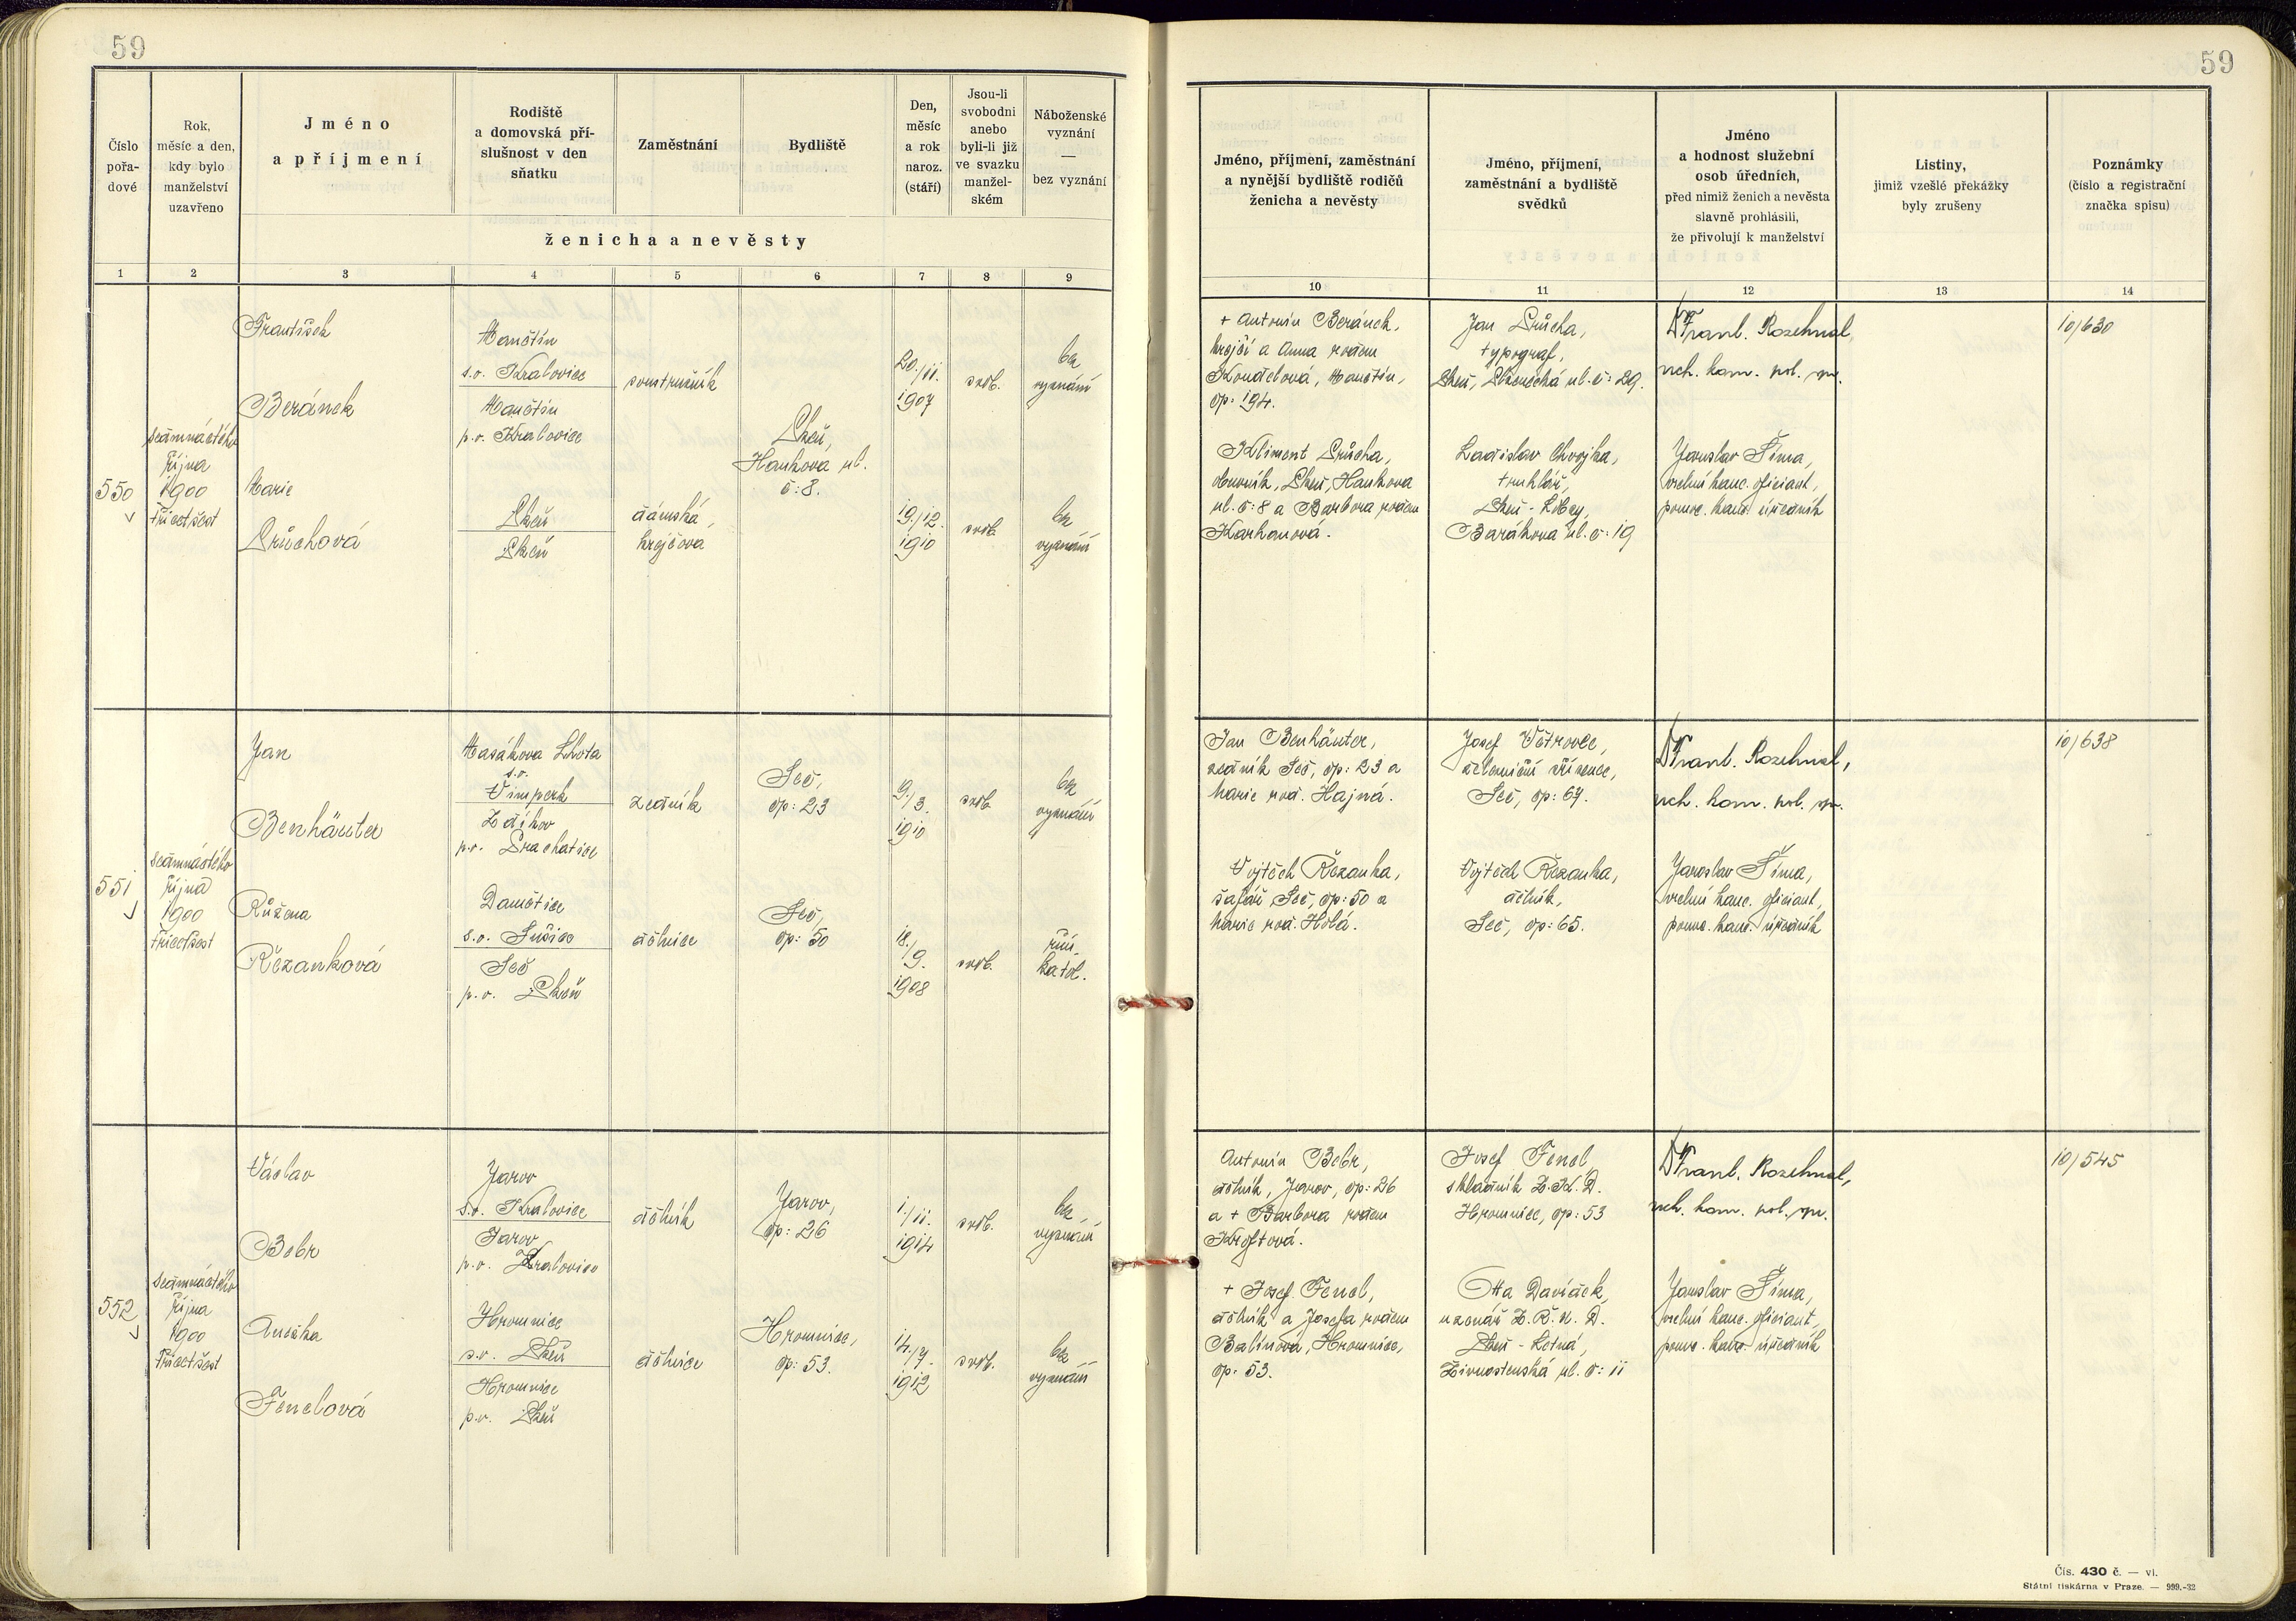 59
59
Číslo pořadové
Rok, měsíc a den, kdy bylo manželství uzavřeno
Jméno a příjmení
Rodiště a domovská příslušnost v den sňatku
Zaměstnání
Bydliště
Den, měsíc a rok naroz. (stáří)
Jsou-li svobodni anebo byli-li již ve svazku manželském
Náboženské vyznání — bez vyznání
ženicha a nevěsty
Jméno, příjmení, zaměstnání a nynější bydliště rodičů ženicha a nevěsty
Jméno, příjmení, zaměstnání a bydliště svědků
Jméno a hodnost služební osob úředních, před nimiž ženich a nevěsta slavně prohlásili, že přivolují k manželství
Listiny, jimiž vzešlé překážky byly zrušeny
Poznámky (číslo a registrační značka spisu)
1 2 3 4 5 6 7 8 9 10 11 12 13 14
550
sedmnáctého
října
1900
třicetšest
František
Beránek
Manětín
s.o. Kralovice
Manětín
p.o. Kralovice
soustružník
Plzeň,
Hankova ul.
č: 8.
20./11.
1907
svob.
bez
vyznání
Marie
Průchová
Plzeň
Plzeň
dámská
krejčová
19./12.
1910
svob.
bez
vyznání
+ Antonín Beránek,
krejčí a Anna rodem
Koudelová, Manětín,
čp: 194.
Kliment Průcha,
obuvník, Plzeň, Hankova
ul. č: 8 a Barbora rodem
Karhanová.
Jan Průcha,
typograf,
Plzeň, ul. č: 29.
Ladislav Chvojka,
truhlář,
Plzeň - Lobzy,
Barákova ul. č: 19
Dr Frant. Rozehnal,
vrch. kom. pol. spr.
Jaroslav Šíma,
vrchní kanc. oficiant,
pomoc. kanc. úředník
10/630
551
sedmnáctého
října
1900
třicetšest
Jan
Benhäuter
Masákova Lhota
s.o.
Vimperk
Zdíkov
p.o. Prachatice
zedník
Seč,
čp: 23
9./3.
1910
svob.
bez
vyznání
Růžena
Řezanková
Damětice
s.o. Sušice
Seč
p.o. Plzeň
dělnice
Seč,
čp: 50
18.
/9.
1908
svob.
řím.
katol.
Jan Benhäuter,
zedník Seč, čp: 23 a
Marie rod. Hajná.
Vojtěch Řezanka,
šafář, Seč, čp: 50 a
Marie rod. Holá.
Josef Větrovec,
železniční zřízenec,
Seč, čp: 67.
Vojtěch Řezanka,
dělník,
Seč, čp: 65.
Dr Frant. Rozehnal,
vrch. kom. pol. spr.
Jaroslav Šíma,
vrchní kanc. oficiant,
pomoc. kanc. úředník
10/638
552
sedmnáctého
října
1900
třicetšest
Václav
Bobr
Jarov
s.o. Kralovice
Jarov
p.o. Kralovice
dělník
Jarov,
čp: 26
1./11.
1914
svob.
bez
vyznání
Anežka
Fenclová
Hromnice
s.o. Plzeň
Hromnice
p.o. Plzeň
dělnice
Hromnice,
čp: 53.
14./7.
1912
svob.
bez
vyznání
Antonín Bobr,
dělník, Jarov, čp: 26
a + Barbora rodem
Kroftová.
+ Josef Fencl,
dělník a Josefa rodem
Balínová, Hromnice,
čp. 53.
Josef Fencl,
skladník Z. K. D.
Hromnice, čp: 53
Otta Davídek,
Plzeň - Letná,
Živnostenská ul. č: 11
Dr Frant. Rozehnal,
vrch. kom. pol. spr.
Jaroslav Šíma,
vrchní kanc. oficiant,
pomoc. kanc. úředník
10/545
Čís. 430 č. — vi.
Státní tiskárna v Praze. — 999.-32